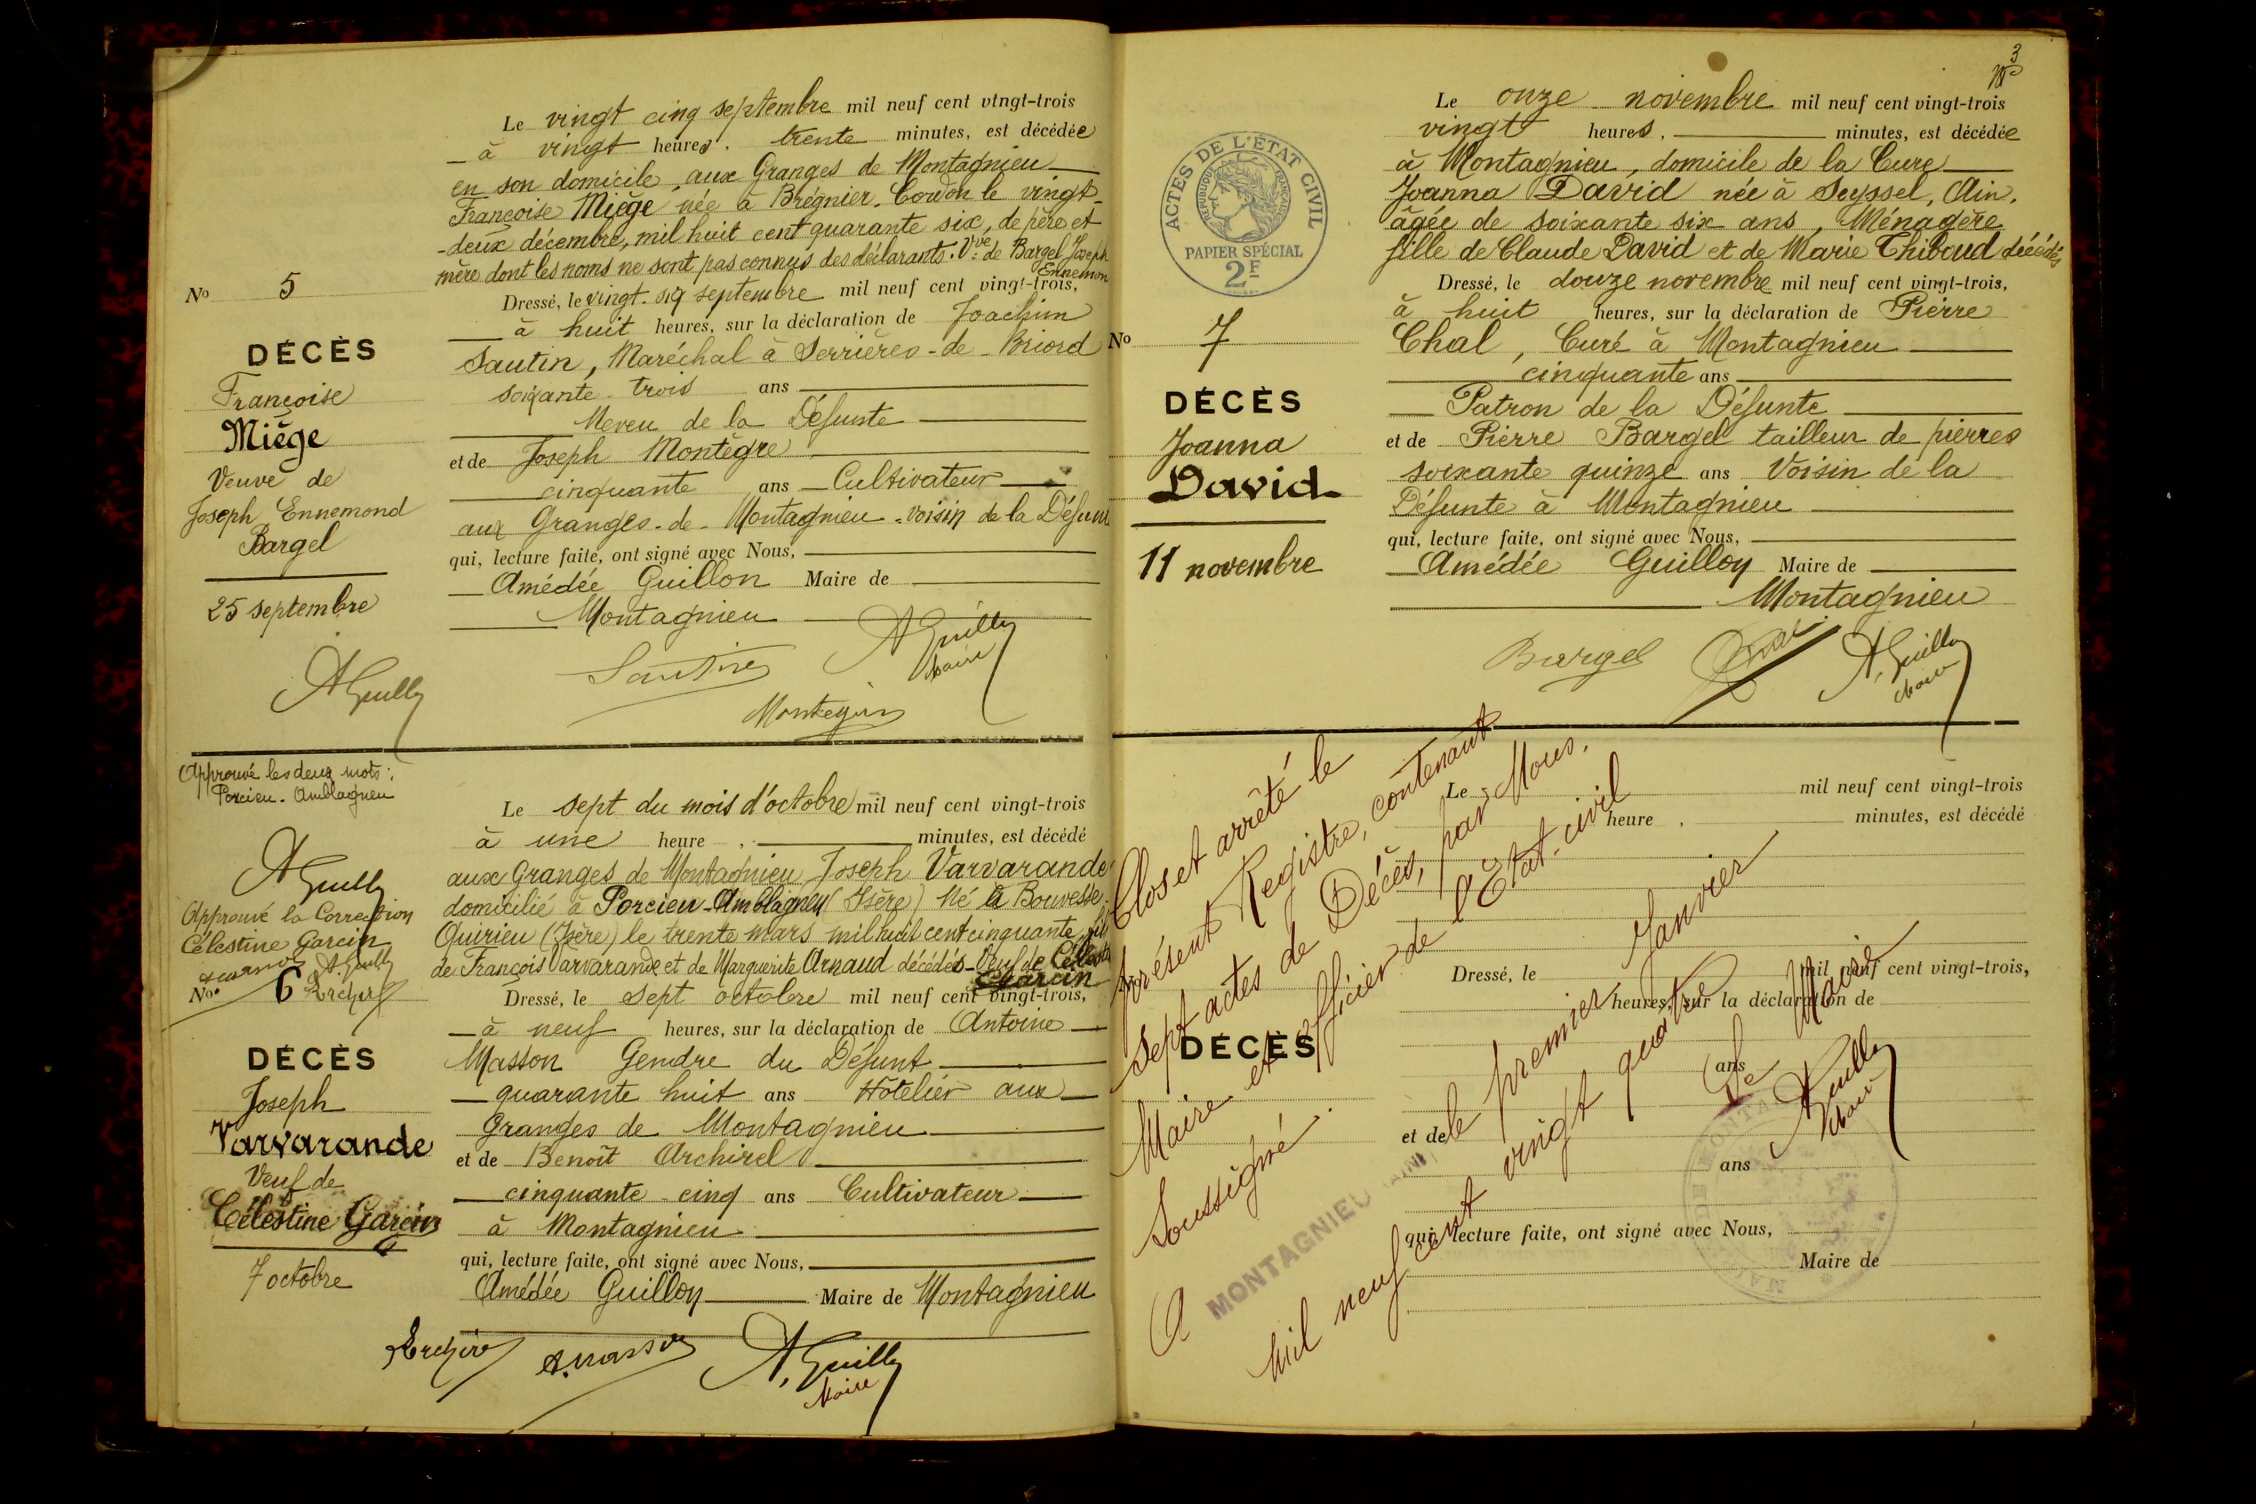 Le vingt cinq septembre mil neuf cent vingt-trois
à vingt heures. trente minutes, est décédée
en son domicile, aux Granges de Montagnieu
Françoise Miège née à Brégnier-Cordon le vingt-
-deux décembre, mil huit cent quarante six, de père et
mère dont les noms ne sont pas connus des déclarants. Vve de Bargel Joseph
Ennemon
No 5
Dressé, le vingt-six septembre mil neuf cent vingt-trois,
à huit heures, sur la déclaration de Joachim
Sautin, Maréchal à Serrières-de-Briord
soixante-trois ans
Neveu de la Défunte
et de Joseph Montègre
cinquante ans Cultivateur
aux Granges-de-Montagnieu-voisin de la Défunte
qui, lecture faite, ont signé avec Nous,
Amédée Guillon Maire de
Montagnieu
DÉCÈS
Françoise
Miège
Veuve de
Joseph Ennemond
Bargel
25 septembre
A Guillon
Sautin
A Guillon
Maire
Approuvé les deux mots :
Porcieu-Amblagneu
A Guillon
Approuvé la Correction
Célestine Garcin
A. Guillon
No. 6
Le sept du mois d'octobre mil neuf cent vingt-trois
à une heure . minutes, est décédé
aux Granges de Montagnieu Joseph Varvarande
domicilié à Porcieu-Amblagneu (Isère) Né à Bouvesse-
Quirieu (Isère) le trente mars mil huit cent cinquante, fils
de François Varvarande et de Marguerite Arnaud décédés-Veuf de Célestine
Garcin
Dressé, le sept octobre mil neuf cent vingt-trois,
à neuf heures, sur la déclaration de Antoine
Masson Gendre du Défunt
quarante huit ans Hôtelier aux
Granges de Montagnieu
et de Benoît Archirel
cinquante-cinq ans Cultivateur
à Montagnieu
qui, lecture faite, ont signé avec Nous,
Amédée Guillon Maire de Montagnieu
DÉCÈS
Joseph
Varvarande
Veuf de
Célestine Garcin
7 octobre
A. Masson
A. Guillon
Maire
3
Le onze novembre mil neuf cent vingt-trois
vingt heures. minutes, est décédée
à Montagnieu, domicile de la Cure
Joanna David née à Seyssel, Ain.
âgée de soixante six ans, Ménagère
fille de Claude David et de Marie Thiboud décédés
Dressé, le douze novembre mil neuf cent vingt-trois,
à huit heures, sur la déclaration de Pierre
Chal, Curé à Montagnieu
cinquante ans
Patron de la Défunte
et de Pierre Bargel tailleur de pierres
soixante quinze ans Voisin de la
Défunte à Montagnieu
qui, lecture faite, ont signé avec Nous,
Amédée Guillon Maire de
Montagnieu
ACTES DE L'ÉTAT CIVIL
RÉPUBLIQUE FRANÇAISE
PAPIER SPÉCIAL
2F
No 7
DÉCÈS
Joanna
David
11 novembre
Bargel
Chal
A. Guillon
Maire
Le mil neuf cent vingt-trois
heure . minutes, est décédé
Dressé, le mil neuf cent vingt-trois,
heures, sur la déclaration de
ans
et de
ans
qui, lecture faite, ont signé avec Nous,
Maire de
DÉCÈS
Clos et arrêté le
présent Registre, contenant
sept actes de Décès, par Nous.
Maire et officier de l'État-civil
Soussigné.
A MONTAGNIEU (AIN) le premier Janvier
mil neuf cent vingt quatre
Le Maire
A Guillon
Maire